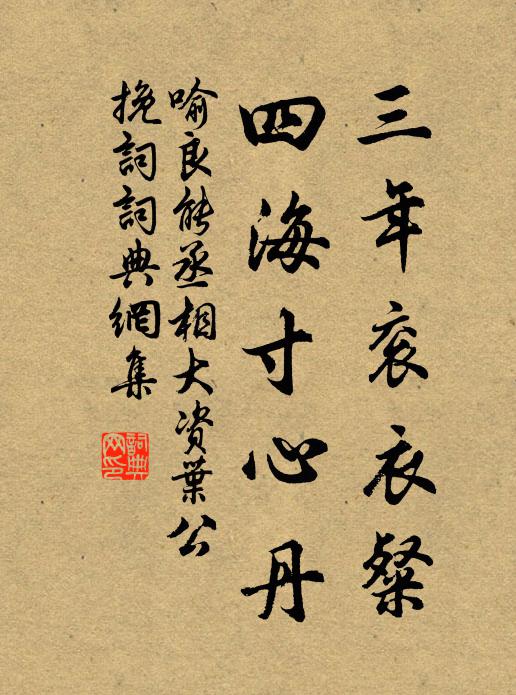 三年衮衣粲
四海寸心丹
喻良能丞相大资葉公
挽詞詞典網集
詞典网印